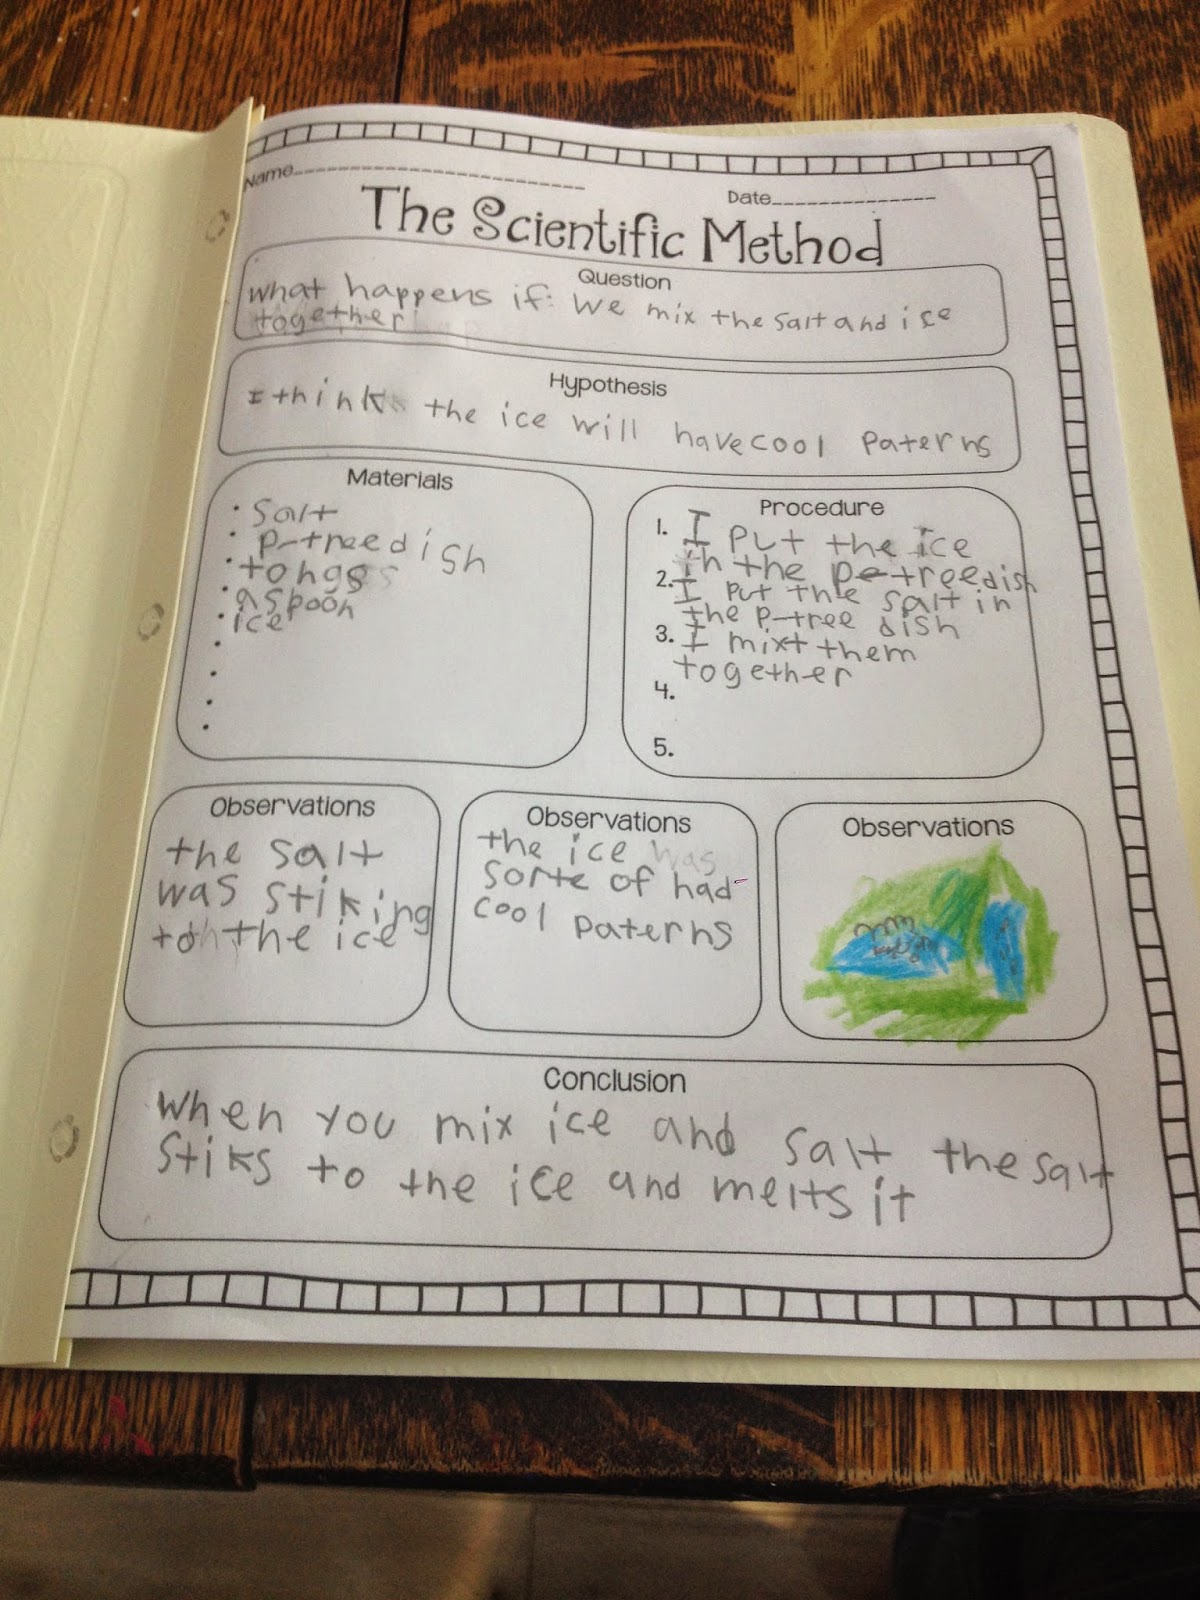 Name
Date
The Scientific Method
Question
what happens if: we mix the salt and ice
together
Hypothesis
I think the ice will have cool paterns
Materials
• Salt
• p-treedish
• tongs
• a spoon
• ice
•
•
•
•
Procedure
1. I put the ice
in the p-treedish
2. I put the salt in
the p-tree dish
3. I mixt them
together
4.
5.
Observations
the salt
was stiking
to the ice
Observations
the ice
sorte of had
cool paterns
Observations
Conclusion
When you mix ice and salt the salt
stiks to the ice and melts it